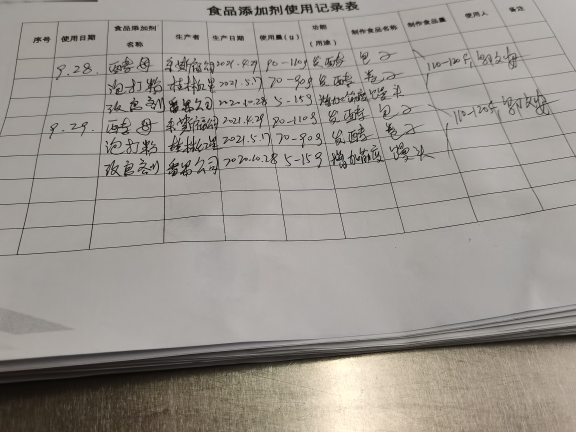 食品添加剂使用记录表
序号 使用日期 食品添加剂名称 生产者 生产日期 使用量(g) 功能(用途) 制作食品名称 制作食品量 使用人 备注
9.28. 酵母 2021.4.29 90-110g 发酵 包子 110-120斤
泡打粉 桂林 2021.5.17 70-90g 发酵 卷子
改良剂 公司 2020.10.28 5-15g 增加筋度 馒头
9.29. 酵母 2021.4.29 90-110g 发酵 包子 110-120斤
泡打粉 桂林 2021.5.17 70-90g 发酵 卷子
改良剂 公司 2020.10.28 5-15g 增加筋度 馒头